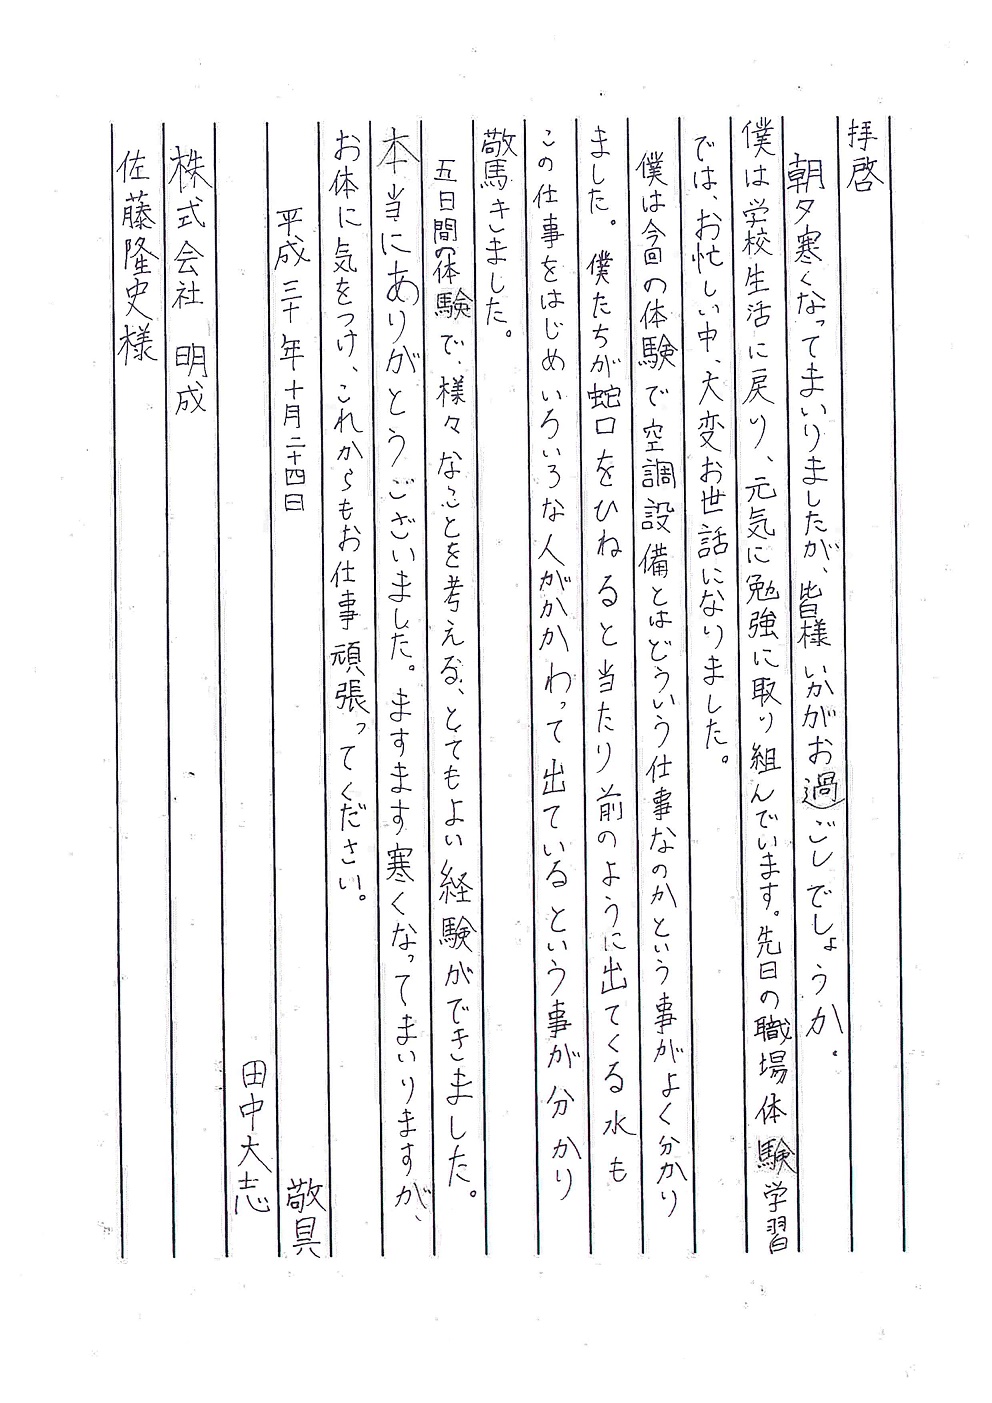 拝啓
朝夕寒くなってまいりましたが、皆様いかがお過ごしでしょうか。
僕は学校生活に戻り、元気に勉強に取り組んでいます。先日の職場体験学習
では、お忙しい中、大変お世話になりました。
僕は今回の体験で空調設備とはどういう仕事なのかという事がよく分かり
ました。僕たちが蛇口をひねると当たり前のように出てくる水も
この仕事をはじめいろいろな人がかかわって出ているという事が分かり
驚きました。
五日間の体験で、様々なことを考える、とてもよい経験ができました。
本当にありがとうございました。ますます寒くなってまいりますが、
お体に気をつけ、これからもお仕事頑張ってください。
敬具
平成三十年十月二十四日
田中大志
株式会社 明成
佐藤隆史様